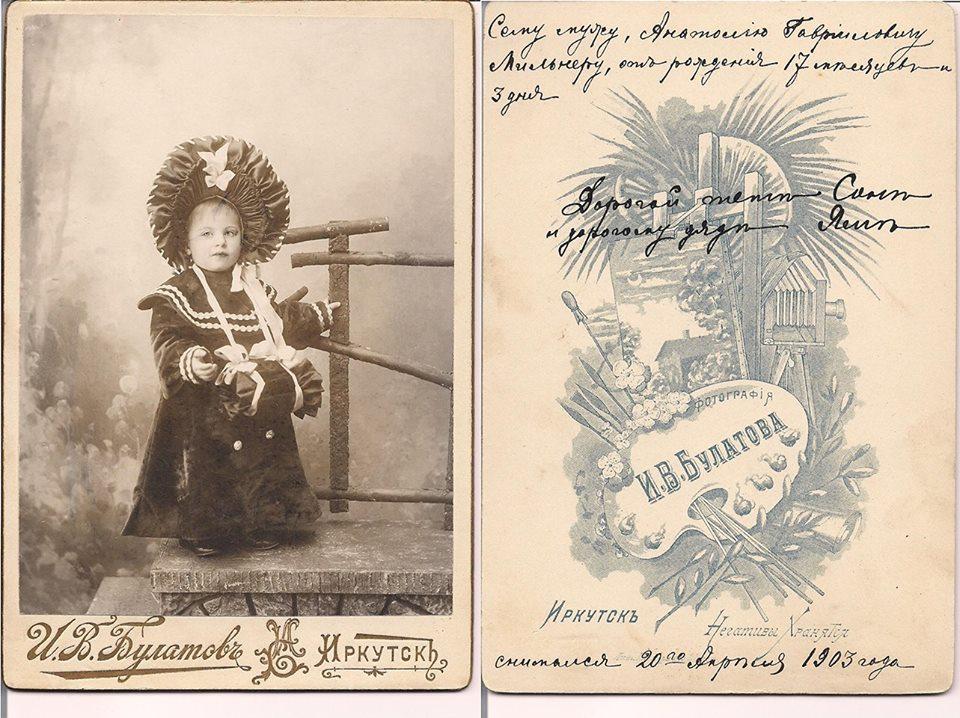 И. В. Булатовъ Иркутскъ
Сему мужу, Анатолію Гавріиловичу
Мильнеру, отъ рожденія 17 мѣсяцевъ и
3 дня
Дорогой тетѣ Сонѣ
и дорогому дядѣ Яшѣ
ФОТОГРАФІЯ
И.В.БУЛАТОВА
ИРКУТСКЪ
Негативы Хранятся
снимался 20го Апрѣля 1903 года